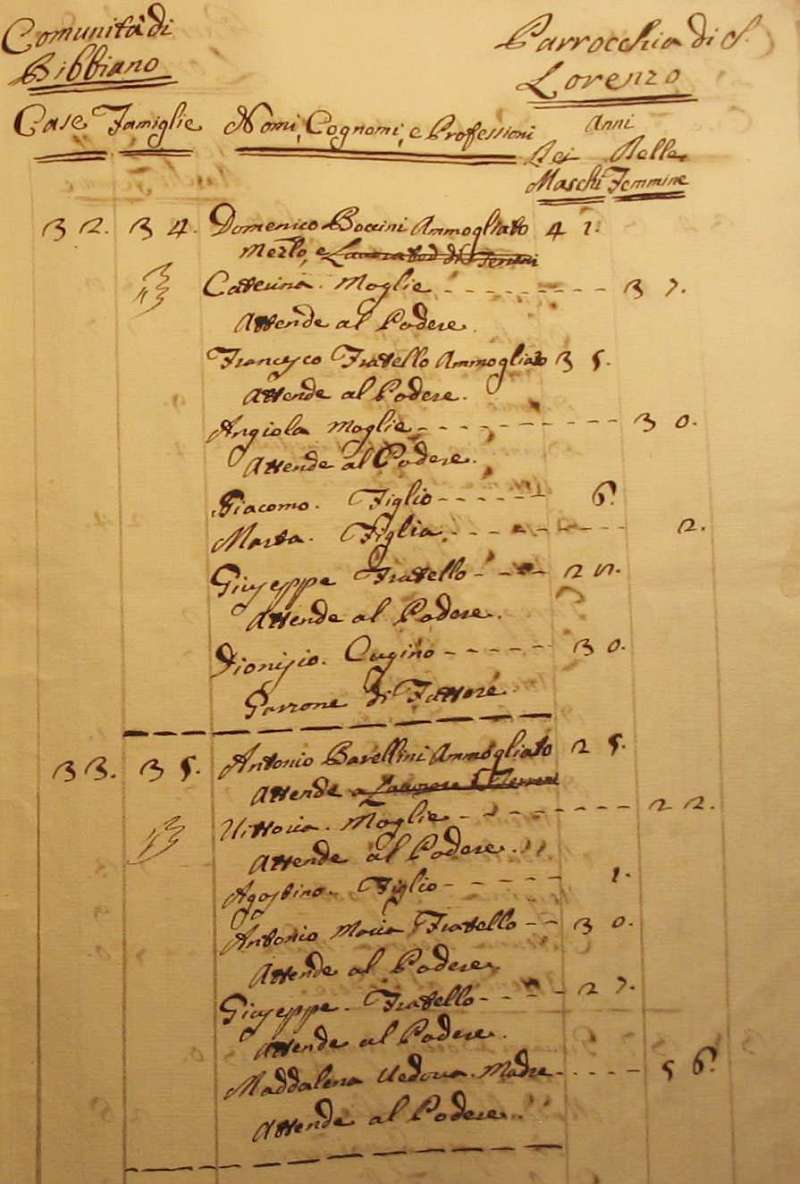 Comunità di
Bibbiano
Parrocchia di S.
Lorenzo
Case Famiglie Nomi, Cognomi, e Professioni
Anni
Dei Delle
Maschi Femmine
32. 34. Domenico Boccini Ammogliato 41.
Mezlo, e Lavorator di Terreni
Catterina. Moglie 37.
Attende al Podere.
Francesco Fratello Ammogliato 35.
Attende al Podere.
Angiola Moglie 30.
Attende al Podere.
Giacomo. Figlio 6.
Marta. Figlia 2.
Giuseppe Fratello 25.
Attende al Podere.
Dionisio. Cugino 30.
Garzone di Fattore.
33. 35. Antonio Barellini Ammogliato 25.
Attende a Lavorare i Terreni
Vittoria. Moglie 22.
Attende al Podere.
Agostino. Figlio 1.
Antonio Maria Fratello 30.
Attende al Podere.
Giuseppe. Fratello 27.
Attende al Podere.
Maddalena Vedova. Madre 56.
Attende al Podere.